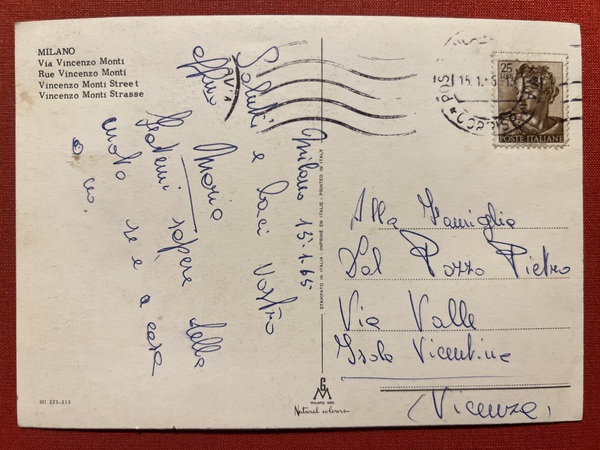 MILANO
Via Vincenzo Monti
Rue Vincenzo Monti
Vincenzo Monti Street
Vincenzo Monti Strasse
Milano 15.1.65
Saluti e baci vostro
Mario
Fatemi sapere della
moto se è a casa
o no.
STAMPATO IN ITALIA - IMPRIMÉ EN ITALIE - PRINTED IN ITALY
25
POSTE ITALIANE
15.1.
Alla Famiglia
Dal Pozzo Pietro
Via Valle
Isola Vicentina
(Vicenza)
101 223-213
GM
MILANO
Natural colours